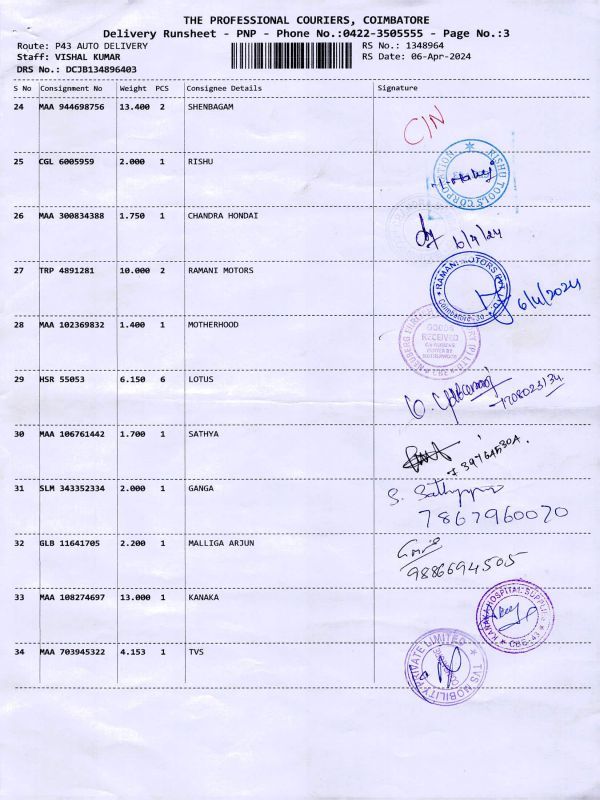 THE PROFESSIONAL COURIERS, COIMBATORE
Delivery Runsheet - PNP - Phone No.:0422-3505555 - Page No.:3
Route: P43 AUTO DELIVERY RS No.: 1348964
Staff: VISHAL KUMAR RS Date: 06-Apr-2024
DRS No.: DCJB134896403
S No Consignment No Weight PCS Consignee Details Signature
24 MAA 944698756 13.400 2 SHENBAGAM
C/N
25 CGL 6005959 2.000 1 RISHU
RISHU TOOLS CORPORATION
26 MAA 300834388 1.750 1 CHANDRA HONDAI
6/4/24
27 TRP 4891281 10.000 2 RAMANI MOTORS
RAMANI MOTORS
Coimbatore-30
6/4/2024
28 MAA 102369832 1.400 1 MOTHERHOOD
GOODS
RECEIVED
29 HSR 55053 6.150 6 LOTUS
30 MAA 106761442 1.700 1 SATHYA
31 SLM 343352334 2.000 1 GANGA
7867960070
32 GLB 11641705 2.200 1 MALLIGA ARJUN
9886694505
33 MAA 108274697 13.000 1 KANAKA
HOSPITAL SUPPLIES
34 MAA 703945322 4.153 1 TVS
TVS MOBILITY PRIVATE LIMITED